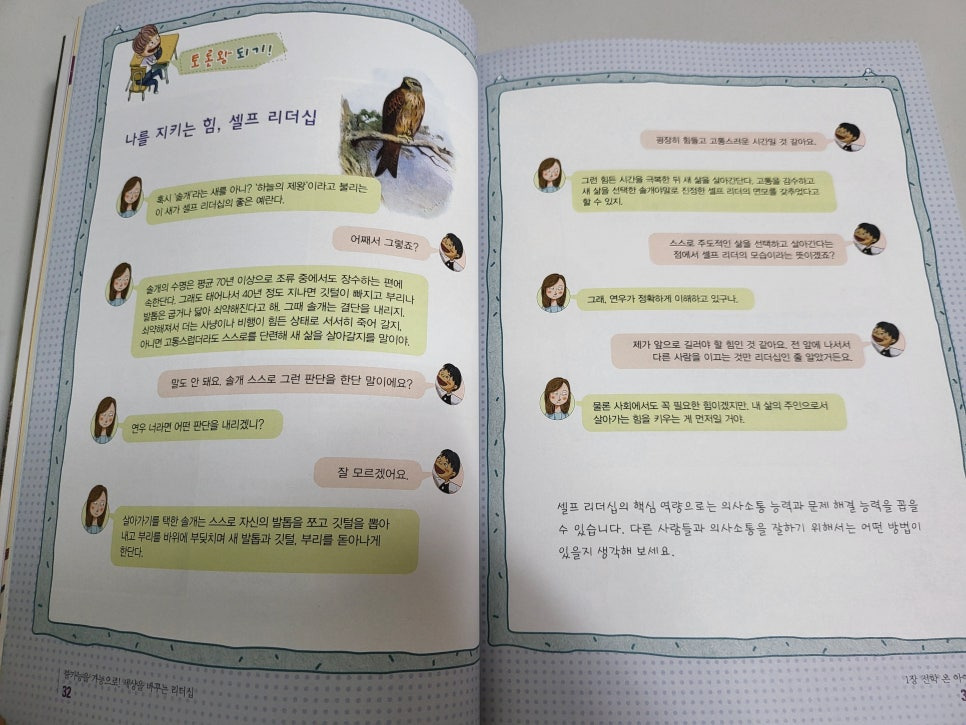 토론왕 되기!
나를 지키는 힘, 셀프 리더십
혹시 '솔개'라는 새를 아니? '하늘의 제왕'이라고 불리는
이 새가 셀프 리더십의 좋은 예란다.
어째서 그렇죠?
솔개의 수명은 평균 70년 이상으로 조류 중에서도 장수하는 편에
속한단다. 그래도 태어나서 40년 정도 지나면 깃털이 빠지고 부리나
발톱은 굽거나 닳아 쇠약해진다고 해. 그때 솔개는 결단을 내리지.
쇠약해져서 더는 사냥이나 비행이 힘든 상태로 서서히 죽어 갈지,
아니면 고통스럽더라도 스스로를 단련해 새 삶을 살아갈지를 말이야.
말도 안 돼요. 솔개 스스로 그런 판단을 한단 말이에요?
연우 너라면 어떤 판단을 내리겠니?
잘 모르겠어요.
살아가기를 택한 솔개는 스스로 자신의 발톱을 쪼고 깃털을 뽑아
내고 부리를 바위에 부딪치며 새 발톱과 깃털, 부리를 돋아나게
한단다.
불가능을 가능으로! 세상을 바꾸는 리더십
32
굉장히 힘들고 고통스러운 시간일 것 같아요.
그런 힘든 시간을 극복한 뒤 새 삶을 살아간단다. 고통을 감수하고
새 삶을 선택한 솔개야말로 진정한 셀프 리더의 면모를 갖추었다고
할 수 있지.
스스로 주도적인 삶을 선택하고 살아간다는
점에서 셀프 리더의 모습이라는 뜻이겠죠?
그래, 연우가 정확하게 이해하고 있구나.
제가 앞으로 길러야 할 힘인 것 같아요. 전 앞에 나서서
다른 사람을 이끄는 것만 리더십인 줄 알았거든요.
물론 사회에서도 꼭 필요한 힘이겠지만, 내 삶의 주인으로서
살아가는 힘을 키우는 게 먼저일 거야.
셀프 리더십의 핵심 역량으로는 의사소통 능력과 문제 해결 능력을 꼽을
수 있습니다. 다른 사람들과 의사소통을 잘하기 위해서는 어떤 방법이
있을지 생각해 보세요.
1장 전학 온 아
3